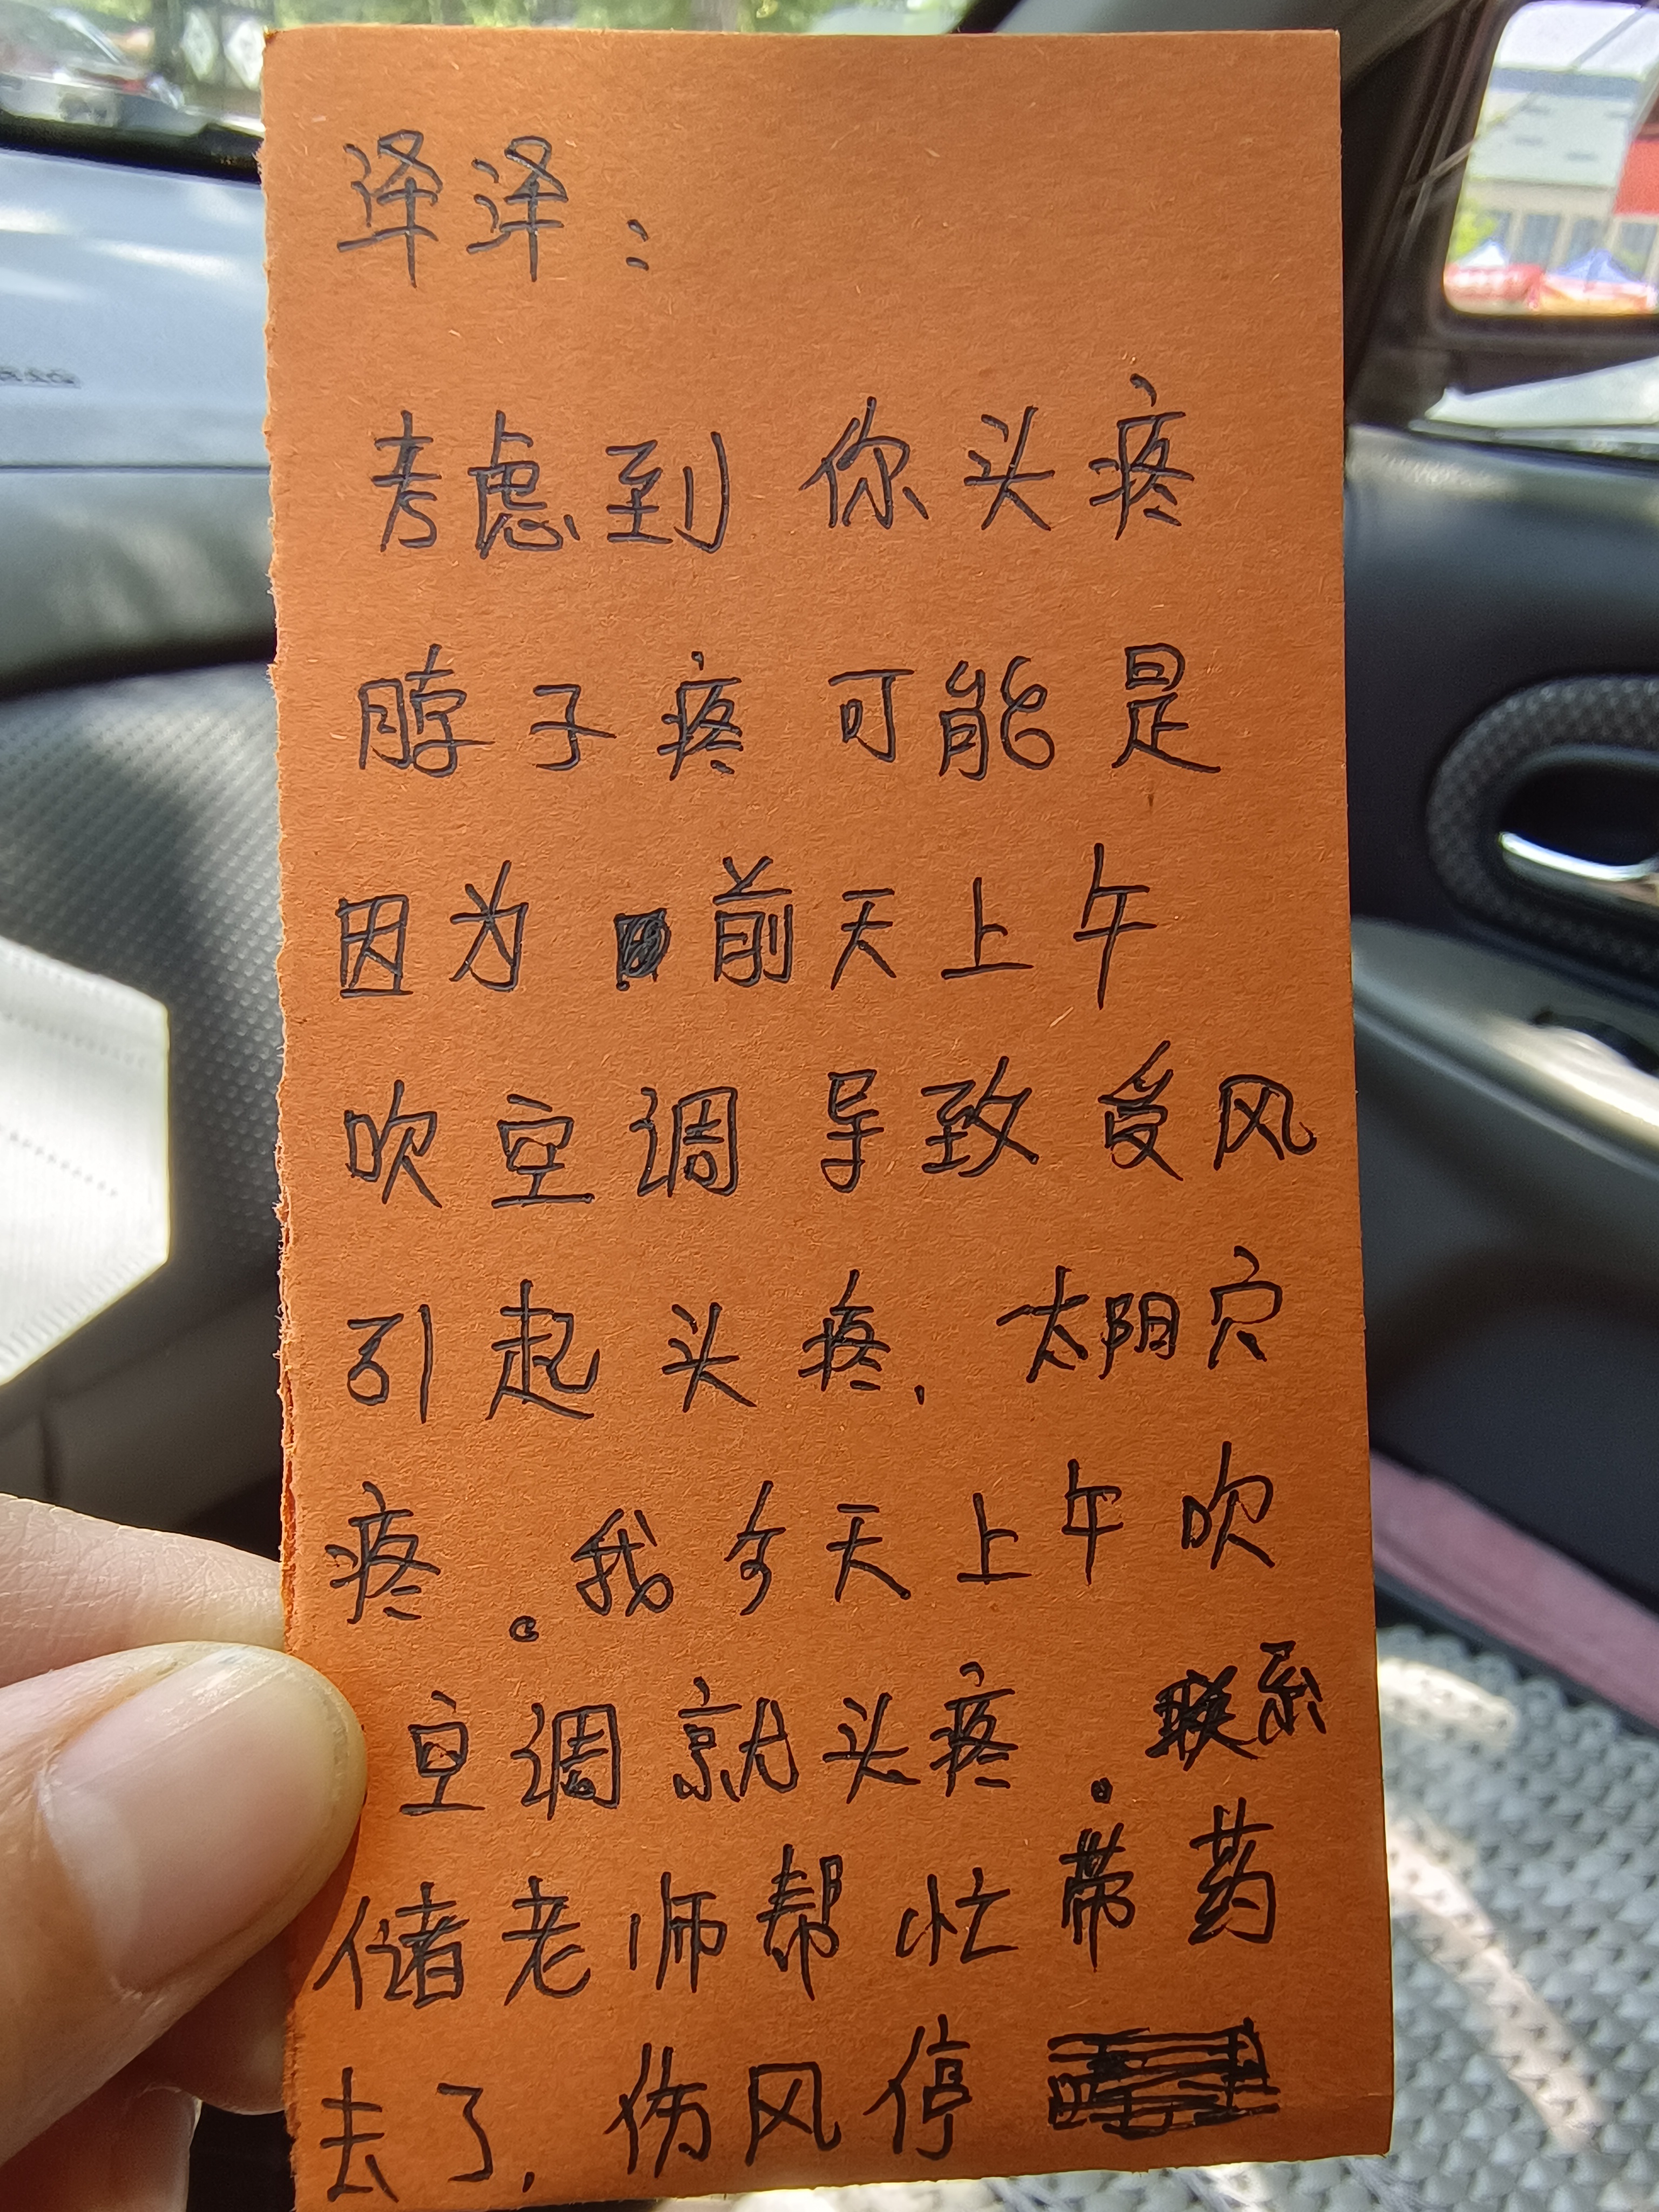 泽泽：
考虑到你头疼
脖子疼可能是
因为前天上午
吹空调导致受风
引起头疼，太阳穴
疼。我今天上午吹
空调就头疼。联系
储老师帮忙带药
去了，伤风停